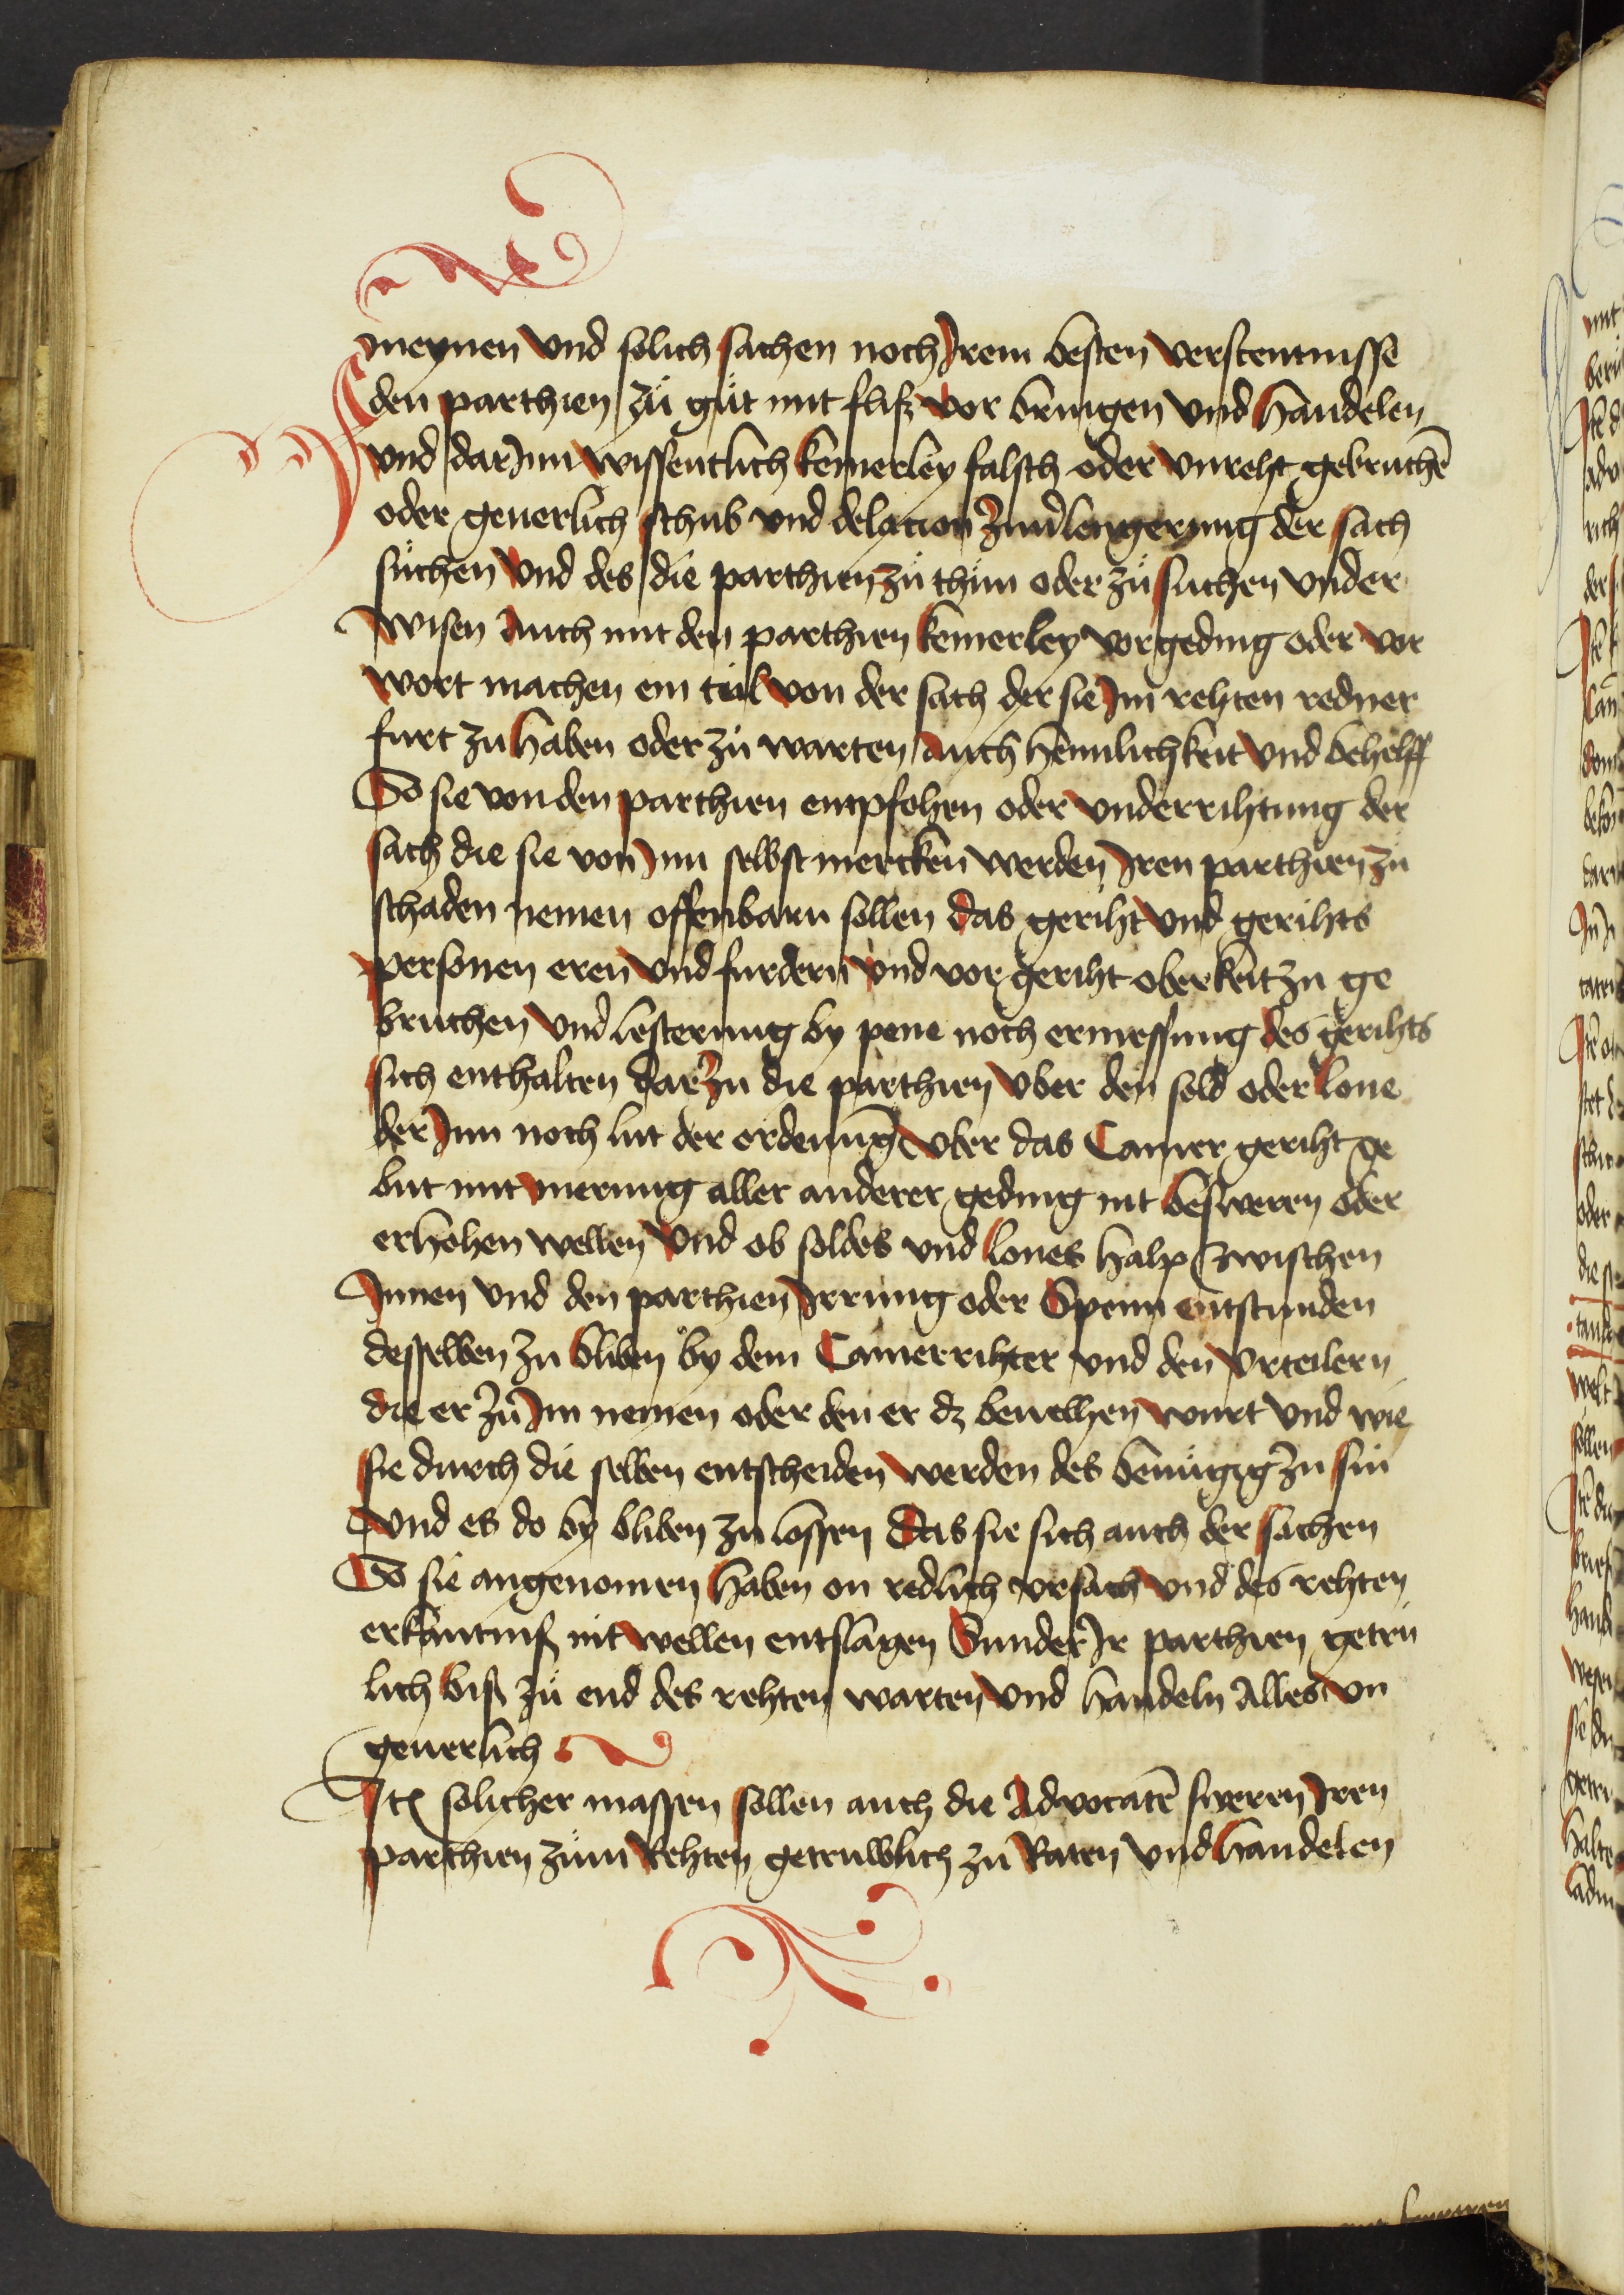 meynen vnd solich sachen noch Irem besten verstentnisse
den parthien zů gůt mit fliſz vor bringen vnd handelen
vnd dar Inn wissentlich keinerley falsch oder vnreht gebruchē
oder geuerlich schub vnd delacion zu verlengerung der sach
sůchen vnd des die parthien zů thůn oder zů sůchen vnder
wisen Auch mit den parthien keinerley vorgeding oder vor
wort machen ein teil von der sach der sie Im rehten redner
fůrt zu haben oder zů warten Auch heimlichkeit vnd behelff
So sie von den parthien empfohen oder vnderrihtung der
sach die sie von Inn selbst mercken werden Iren parthien zů
schaden nemen offenbarn sollen das geriht vnd gerihts
personen eren vnd furdern vnd vor geriht oberkeit zu ge
bruchen vnd lesterung by pene noch ermessung des gerihts
sich enthalten dar zu die parthien vber den sold oder lone
der Inn noch lut der ordenung vber das Camer geriht ge
but mit merung aller anderer geding nit besweren oder
erhohen wellen vnd ob soldes vnd lones halp zwischen
Innen vnd den parthien Irrung oder Spenn entstunden
desselben zu bliben by dem Camerrihter vnd den vrteilern
die er zů Im nemen oder den er dz beuelhen wurt vnd wie
sie durch die selben entscheiden werden des benůgig zu sin
vnd es do by bliben zu lossen Das sie sich auch der sachen
So sie angenomen haben on redlich vrsach vnd des rehten
erkantniſ nit wellen entslagen Sunder Ir parthien getrů
lich biſ zů end des rehten warten vnd handeln Alles vn
geuerlich
Itē solicher massen sollen auch die Advocatē sweren Iren
parthien zům Rehten getruwlich zů Raten vnd handelen